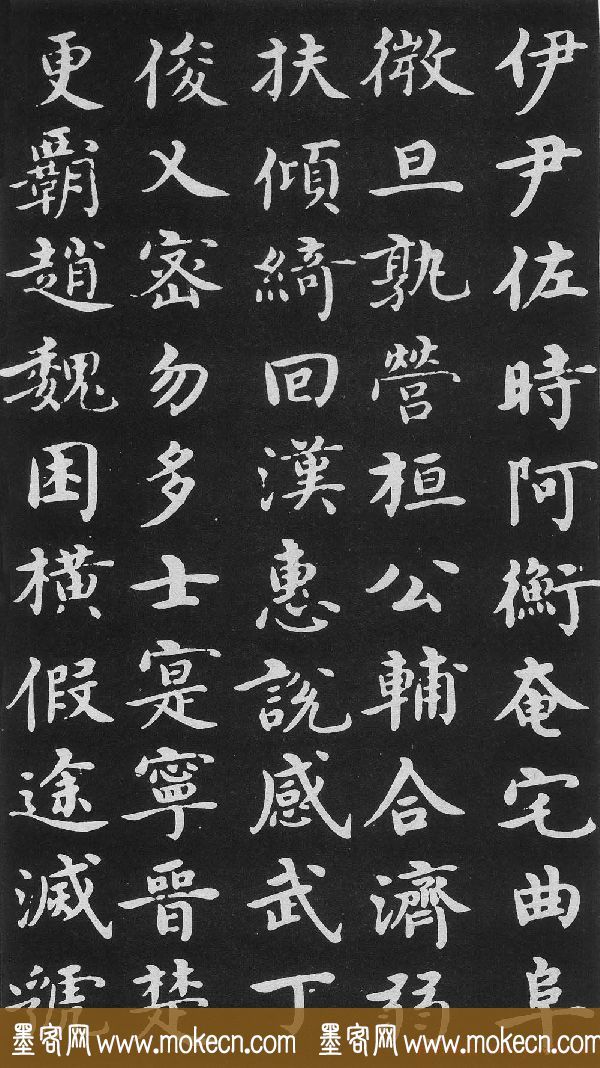 伊尹佐時阿衡奄宅曲阜
微旦孰營桓公輔合濟弱
扶傾綺回漢惠說感武丁
俊乂密勿多士寔寧晉楚
更霸趙魏困橫假途滅虢
墨客网 www.mokecn.com 墨客网 www.mokecn.com